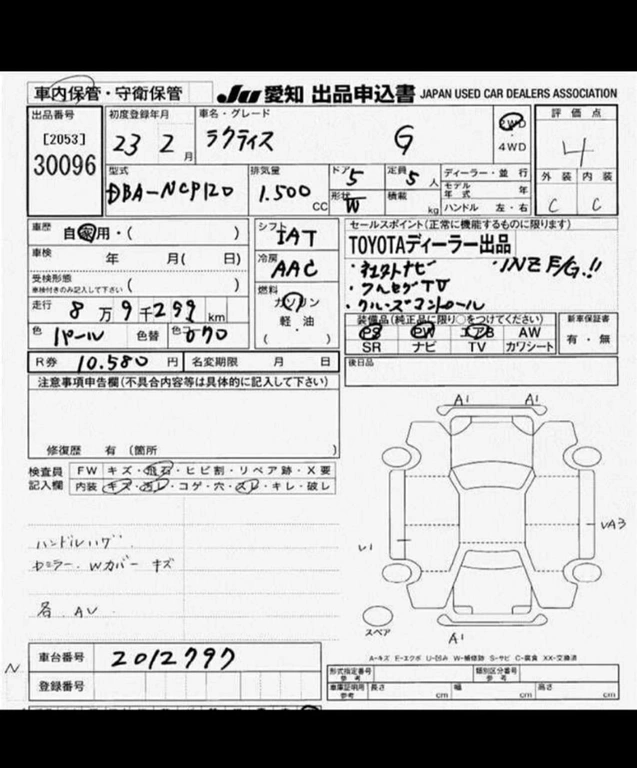 車内保管・守衛保管
JU 愛知 出品申込書 JAPAN USED CAR DEALERS ASSOCIATION
出品番号
[2053]
30096
初度登録年月
23 2 月
車名・グレード
ラクティス G
2WD
4WD
評価点
4
外装 内装
C C
型式
DBA-NCP120
排気量
1.500 CC
ドア 5
定員 5 人
形状 W
積載 kg
ディーラー・並行
モデル年式 年
ハンドル 左・右
車歴 自家用・( )
車検 年 月( 日)
受検形態
車検付きのみ記入して下さい ( )
走行 8万9千299 km
色 パール 色替 色コード 070
シフト IAT
冷房 AAC
燃料
ガソリン
軽・油
( )
セールスポイント(正常に機能するものに限ります)
TOYOTAディーラー出品
・フルセグTV
・クルーズコントロール
装備品(純正品に限り○をつけてください)
PS PW エアB AW
SR ナビ TV カワシート
新車保証書
有・無
R券 10.580 円 名変期限 月 日
後日品
注意事項申告欄(不具合内容等は具体的に記入して下さい)
修復歴 有 (箇所 )
検査員
記入欄
FW キズ・飛石・ヒビ割・リペア跡・X要
内装 キズ・汚レ・コゲ・穴・スレ・キレ・破レ
A1 A1
U1
A1
スペア
ハンドルハゲ
Wカバー キズ
各 AU
A-キズ E-エクボ U-凹み W-補修跡 S-サビ C-腐食 XX-交換済
N
車台番号 2012797
登録番号
形式指定番号
参考
類別区分番号
参考
車庫証明用
参考
長さ cm 幅 cm 高さ cm